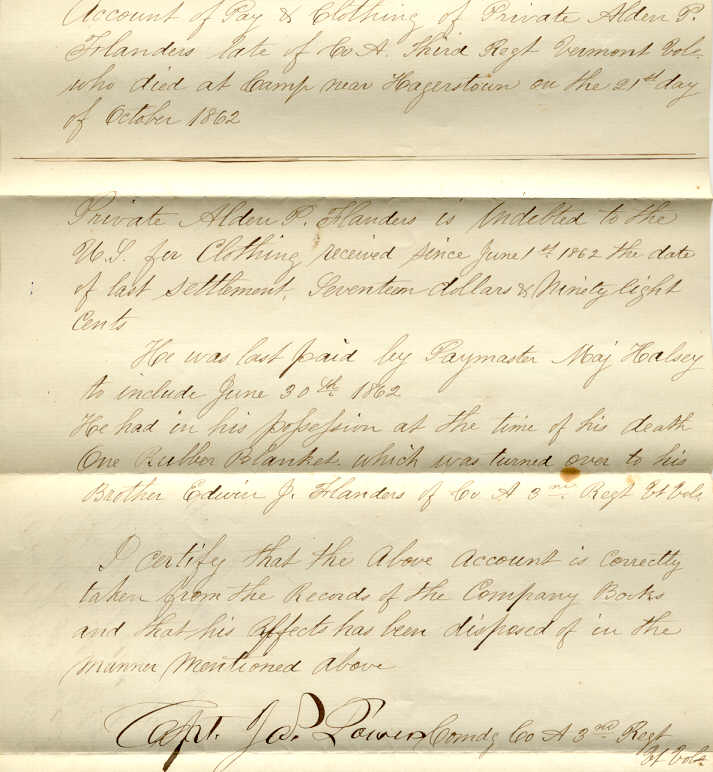 Account of Pay & Clothing of Private Alden P.
Flanders late of Co A. Third Regt Vermont Vols.
who died at Camp near Hagerstown on the 21st day
of October 1862
Private Alden P. Flanders is Indebted to the
U.S. for Clothing received since June 1st 1862 the date
of last settlement, Seventeen dollars & Ninety Eight
Cents
He was last paid by Paymaster Maj Halsey
to include June 30th 1862
He had in his possession at the time of his death
One Rubber Blanket. which was turned over to his
Brother Edwin J. Flanders of Co A 3rd Regt Vt Vols.
I certify that the Above Account is Correctly
taken from the Records of the Company Books
and that his affects has been disposed of in the
manner Mentioned above
Capt. Comdg Co A 3rd Regt
Vt Vols.